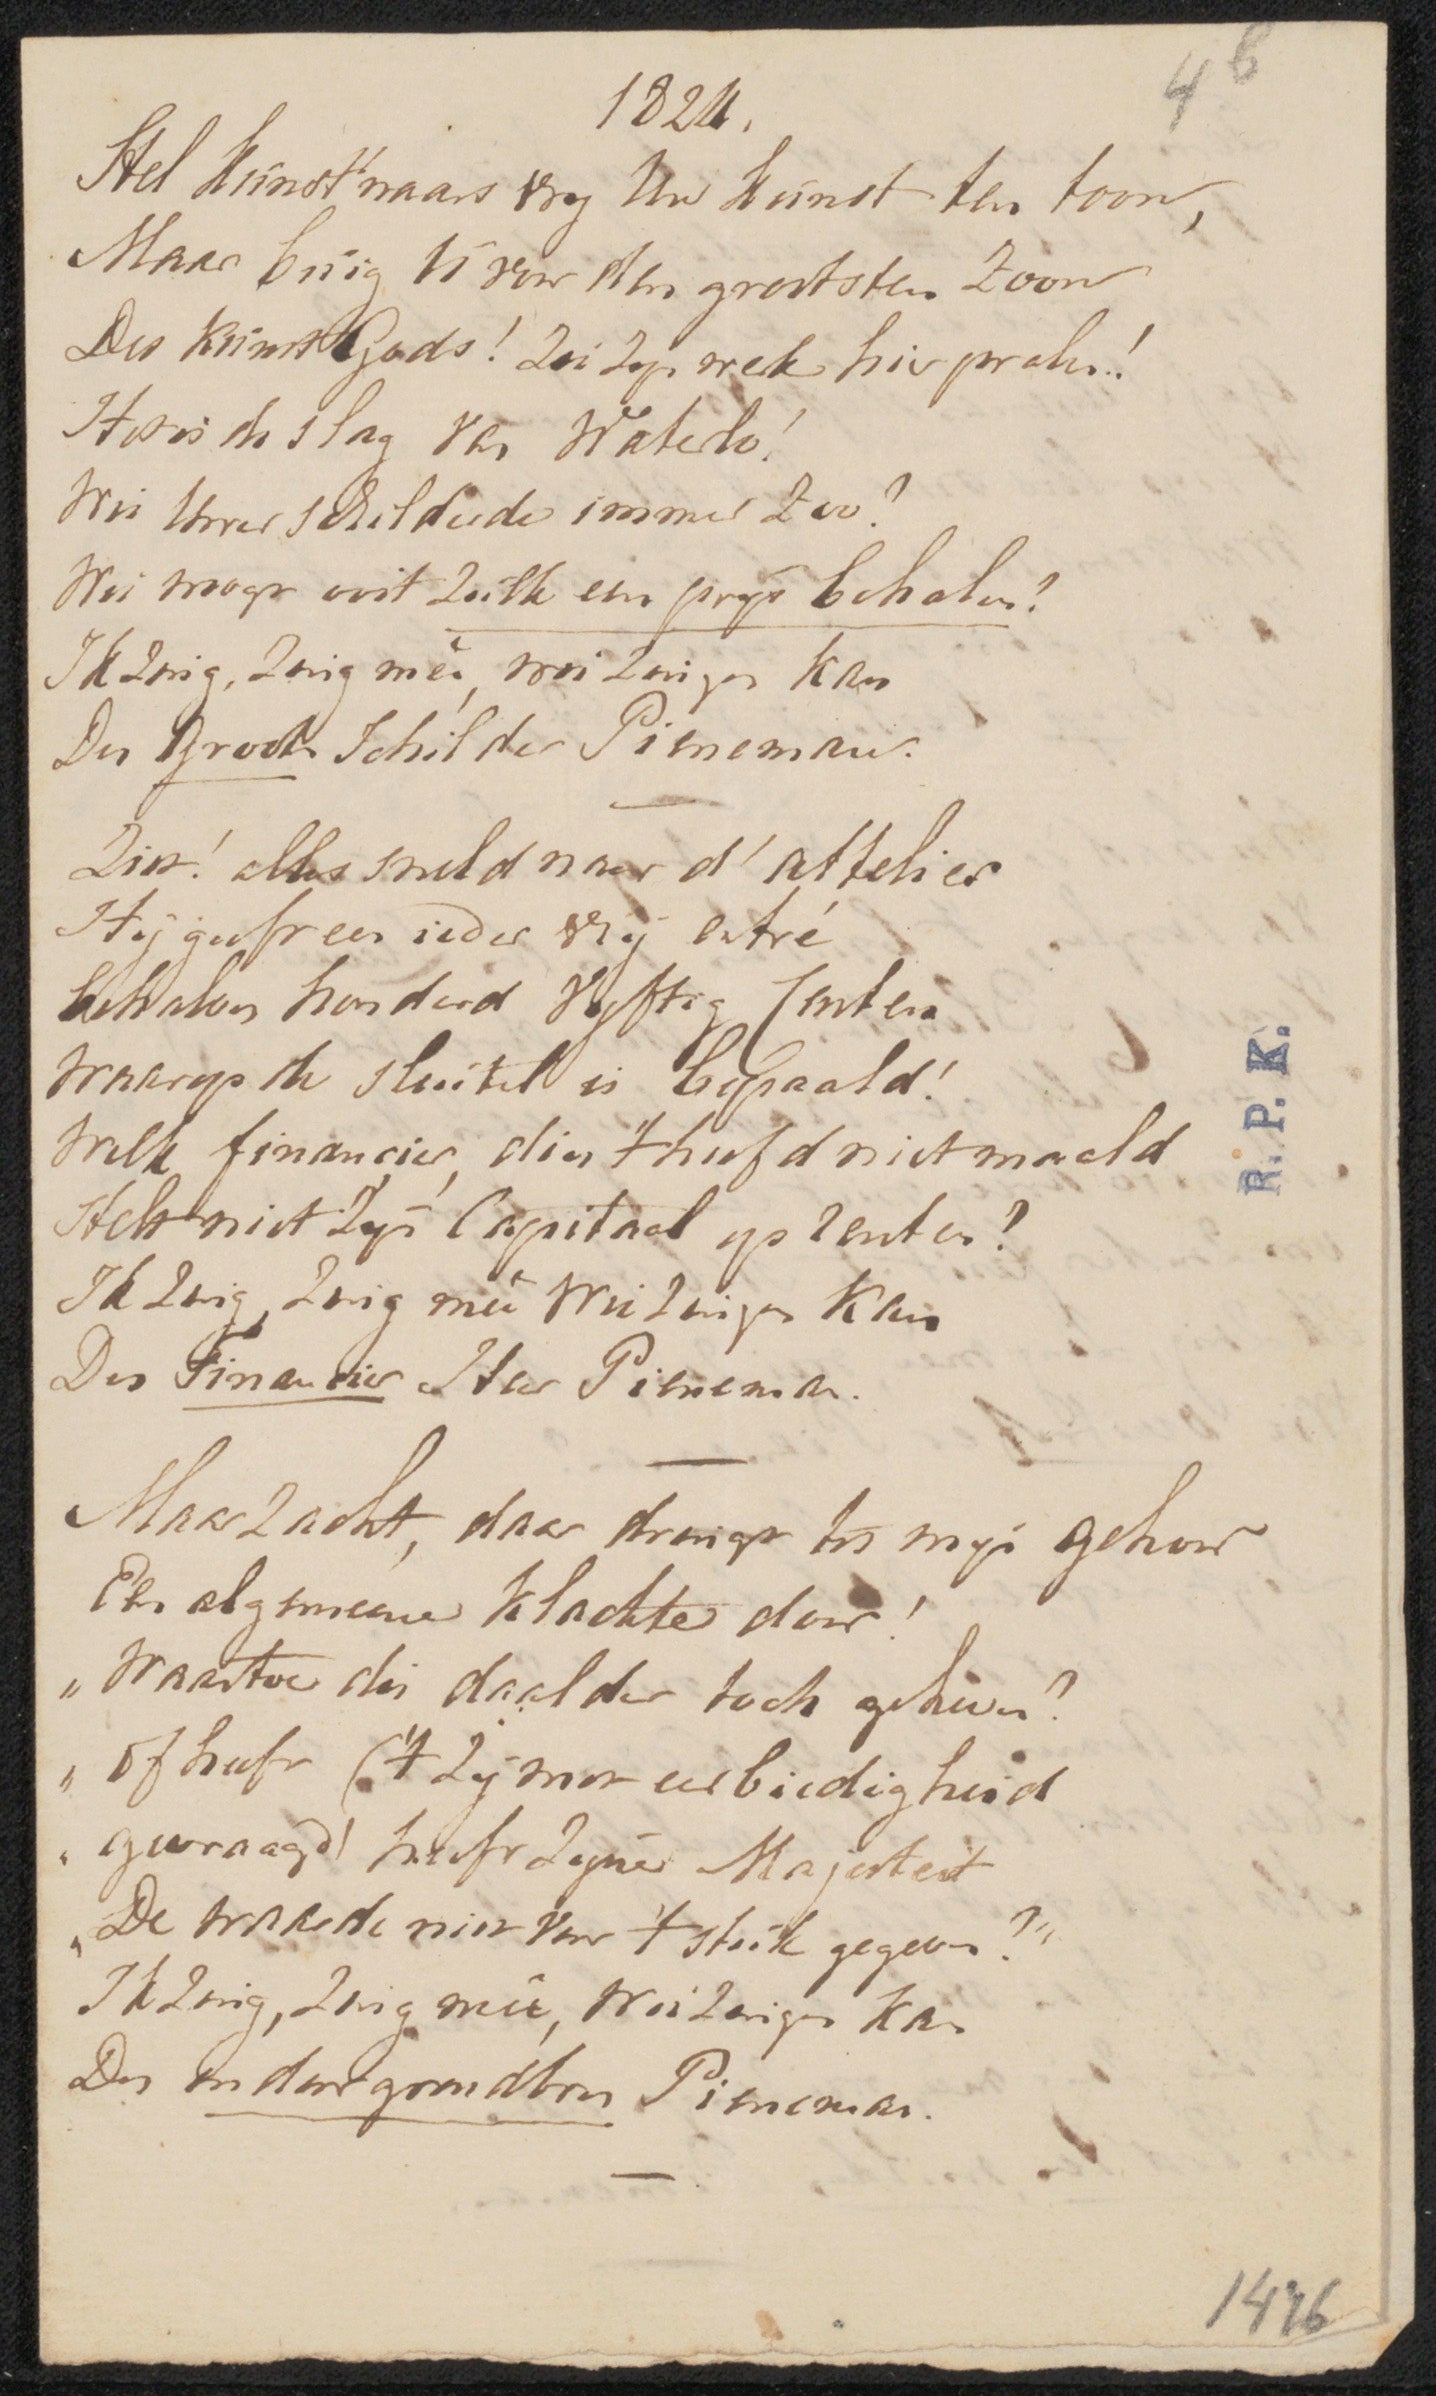 4b
1824.
Stel kunst'naars vry Uw kunst ten toon,
Maar buig U voor den grootsten Zoon
Des kunst Gods! Zie Zyn werk hier pralen!
Het is de slag van Waterlo!
Wie Uwer schilderde immer Zoo?
Wie mogt ooit Zulk een prys behalen?
Ik Zing, Zing mêe, wie Zingen kan
Den Groote Schilder Pieneman.
Ziet! alles sneld naar d'attelier
Hy geeft een ieder vry entré
behalven honderd Vyftig Centen
waarop de sleutel is bepaald!
Welk financier, dien 't hoofd niet maald
Stelt niet Zyn Capitaal op renten?
Ik Zing, Zing mêe Wie Zingen kan
Den Financier Heer Pieneman.
Maar Zacht, daar dringt tot myn gehoor
Een algemeene klachte door!
„ Waartoe die daalder toch geheven?
„ Of heeft ('t Zy met eerbiedigheid
„ gevraagd) heeft Zyne Majesteit
„ De waarde niet voor 't stuk gegeven?"
Ik Zing, Zing mêe, Wie Zingen kan
Den ondoorgrondbren Pieneman.
R. P. K.
1476